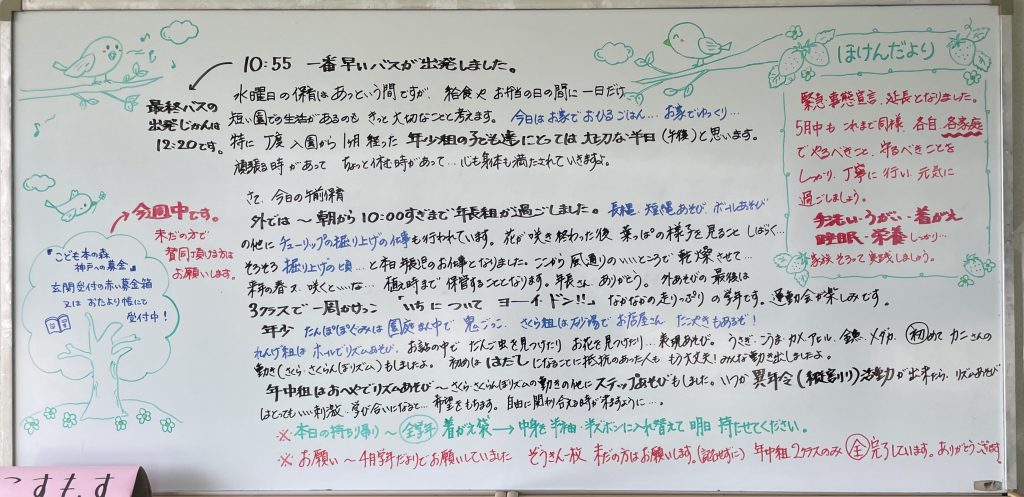 10:55 一番早いバスが出発しました。
最終バスの
出発じかんは
12:20です。
水曜日の保育はあっという間ですが、給食やお弁当の日の間に一日だけ
短い園での生活があるのもきっと大切なことと考えます。今日はお家でおひるごはん…お家でゆっくり…
特に丁度入園から1ヶ月経った年少組の子ども達にとっては大切な半日(午後)と思います。
頑張る時があって ちょっと休む時があって…心も身体も満たされていきますよ。
さて、今日の午前保育
外では〜朝から10:00すぎまで年長組が過ごしました。長縄、短縄あそび、ボールあそび
の他にチューリップの掘り上げの仕事も行われています。花が咲き終わった後 葉っぱの様子を見ること しばらく…
そろそろ掘り上げの頃…と本日最児のお仕事となりました。ここから風通りのいいところで乾燥させて…
来年の春又、咲くといいな… 植える時まで保管することになります。年長さん、ありがとう。外あそびの最後は
3クラスで一周かけっこ「いちについて ヨーイ・ドン!!」なかなかの走りっぷりの学年です。運動会が楽しみです。
年少 たんぽぽぐみは園庭まん中で鬼ごっこ、さくら組は砂場でお店屋さん たこやきもあるぞ!
れんげ組はホールでリズムあそび、お話の中でだんご虫を見つけたりお花を見つけたり…表現あそび。うさぎ・こうま・カメ・アヒル、金魚、メダカ、初めてカニさんの
動き(さくら・さくらんぼリズム)もしましたよ。初めははだしになることに抵抗のあった人ももう大丈夫!みんな動き出しましたよ。
年中組はおへやでリズムあそび〜さくら・さくらんぼリズムの動きの他にステップあそびもしました。いつか異年令(縦割り)活動が出来たら、リズムあそび
はとってもいい刺激、学び合いになると…希望をもちます。自由に関わり合える時が来ますように…。
※本日の持ち帰り〜全学年 着がえ袋→中身を半袖・半ズボンに入れ替えて明日持たせてください。
※お願い〜4月学年だよりでお願いしていました ぞうきん一枚 未だの方はお願いします。(記名せずに) 年中組2クラスのみ全完了しています。ありがとうございます。
ほけんだより
緊急事態宣言、延長となりました。
5月中もこれまで同様、各自、各家庭
でやるべきこと、守るべきことを
しっかり、丁寧に行い、元気に
過ごしましょう。
手洗い・うがい・着がえ
睡眠・栄養しっかり…
家族そろって実践しましょう。
今週中です。
未だの方で
賛同頂ける方は
お願いします。
『こども本の森
神戸への募金』
玄関受付の赤い募金箱
又はおたより帳にて
受付中!
こすもす